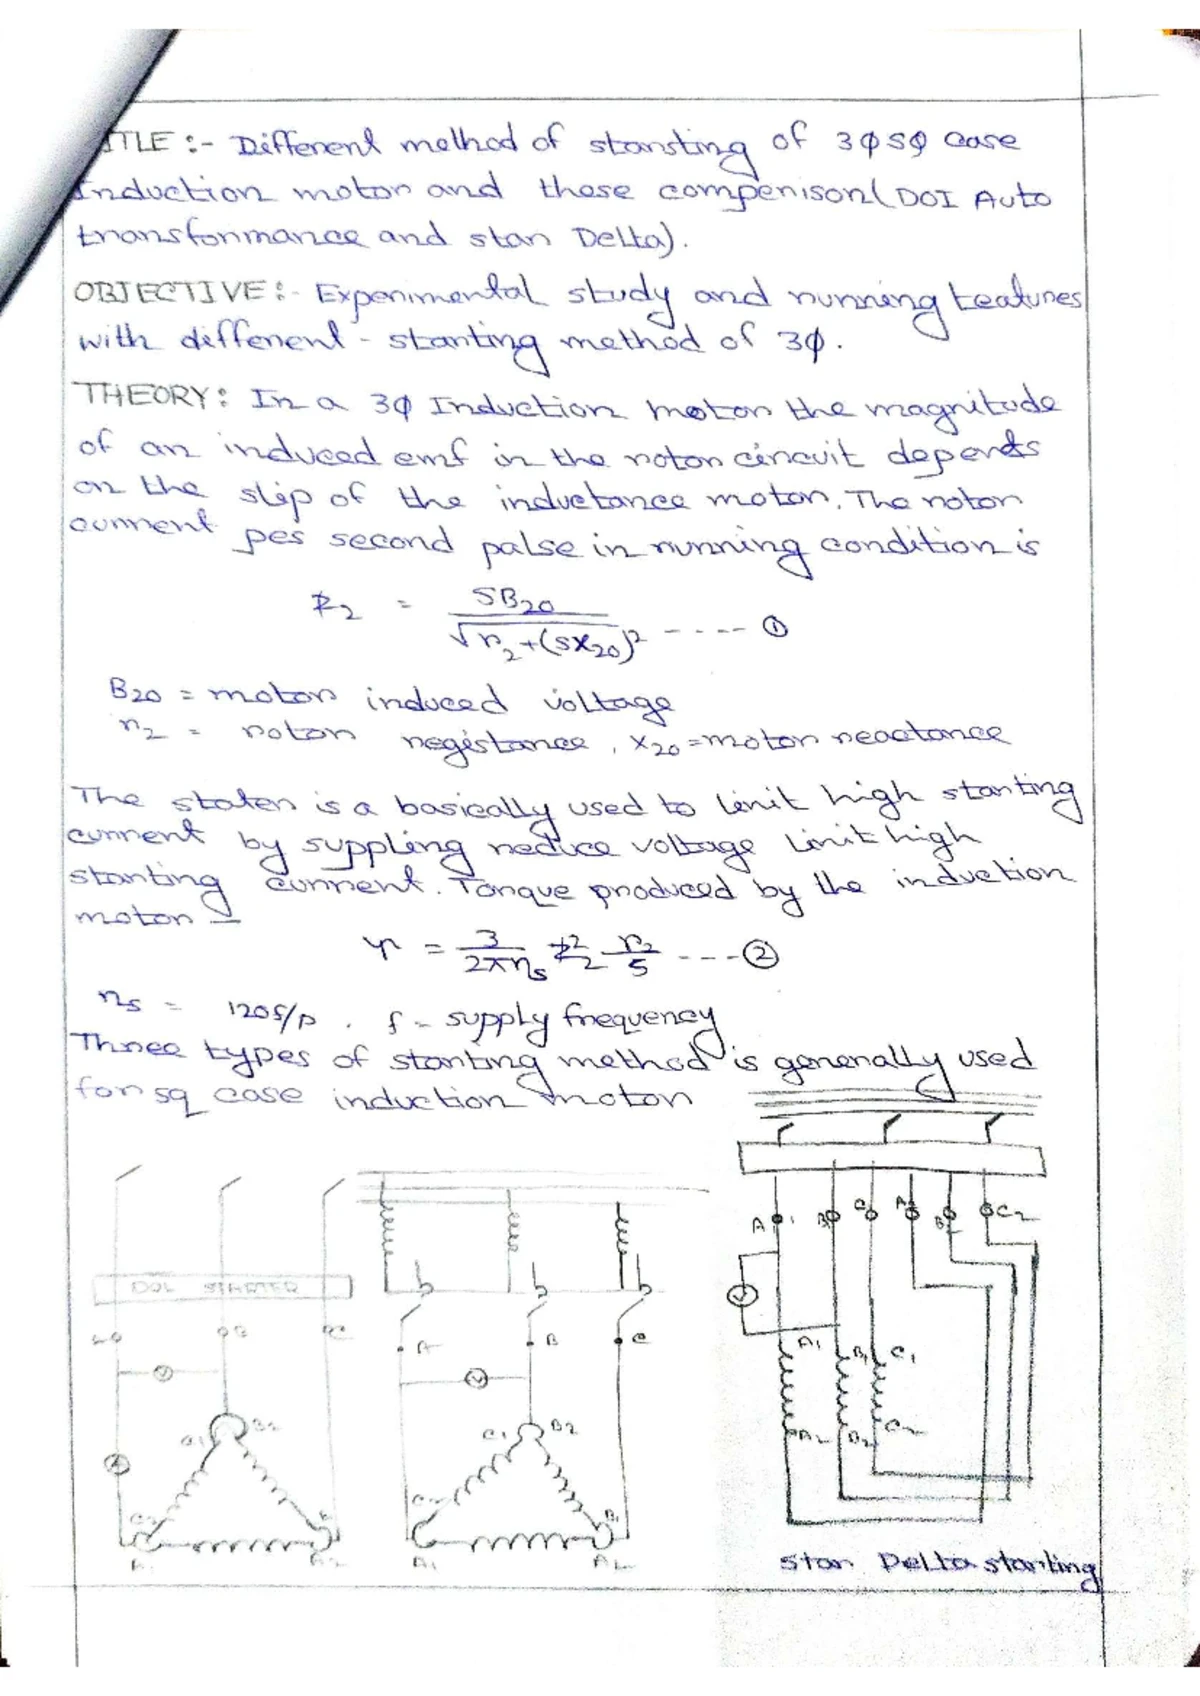 TITLE :- Different method of starsting of 3φ SQ case
Induction motor and those compenison (DOI Auto
transformance and star Delta).
OBJECTIVE :- Experimental study and running teatures
with different - starting method of 3φ.
THEORY : In a 3φ Induction motor the magnitude
of an induced emf in the rotor circuit depends
on the slip of the inductance motor. The rotor
current pes second palse in running condition is
I2 = SB20 / √r2+(SX20)2 ---- ①
B20 = motor induced voltage
r2 = rotor registance, X20 = motor reactance
The staten is a basically used to limit high starting
current by suppling reduce voltage limit high
starting current. Torque produced by the induction
motor =
= 3/2πns I22 r2/S ---②
ns = 120f/p . f - supply frequency
Three types of starting method is generally used
for sq case induction motor
DOL STARTER
A B C
A B C
A1 B C A2 B2 C2
A1 B1 C1
A2 B2 C2
C1 B2
C2 B1
A1 A2
B1 B2
C2
A1 A2
Star Delta starting